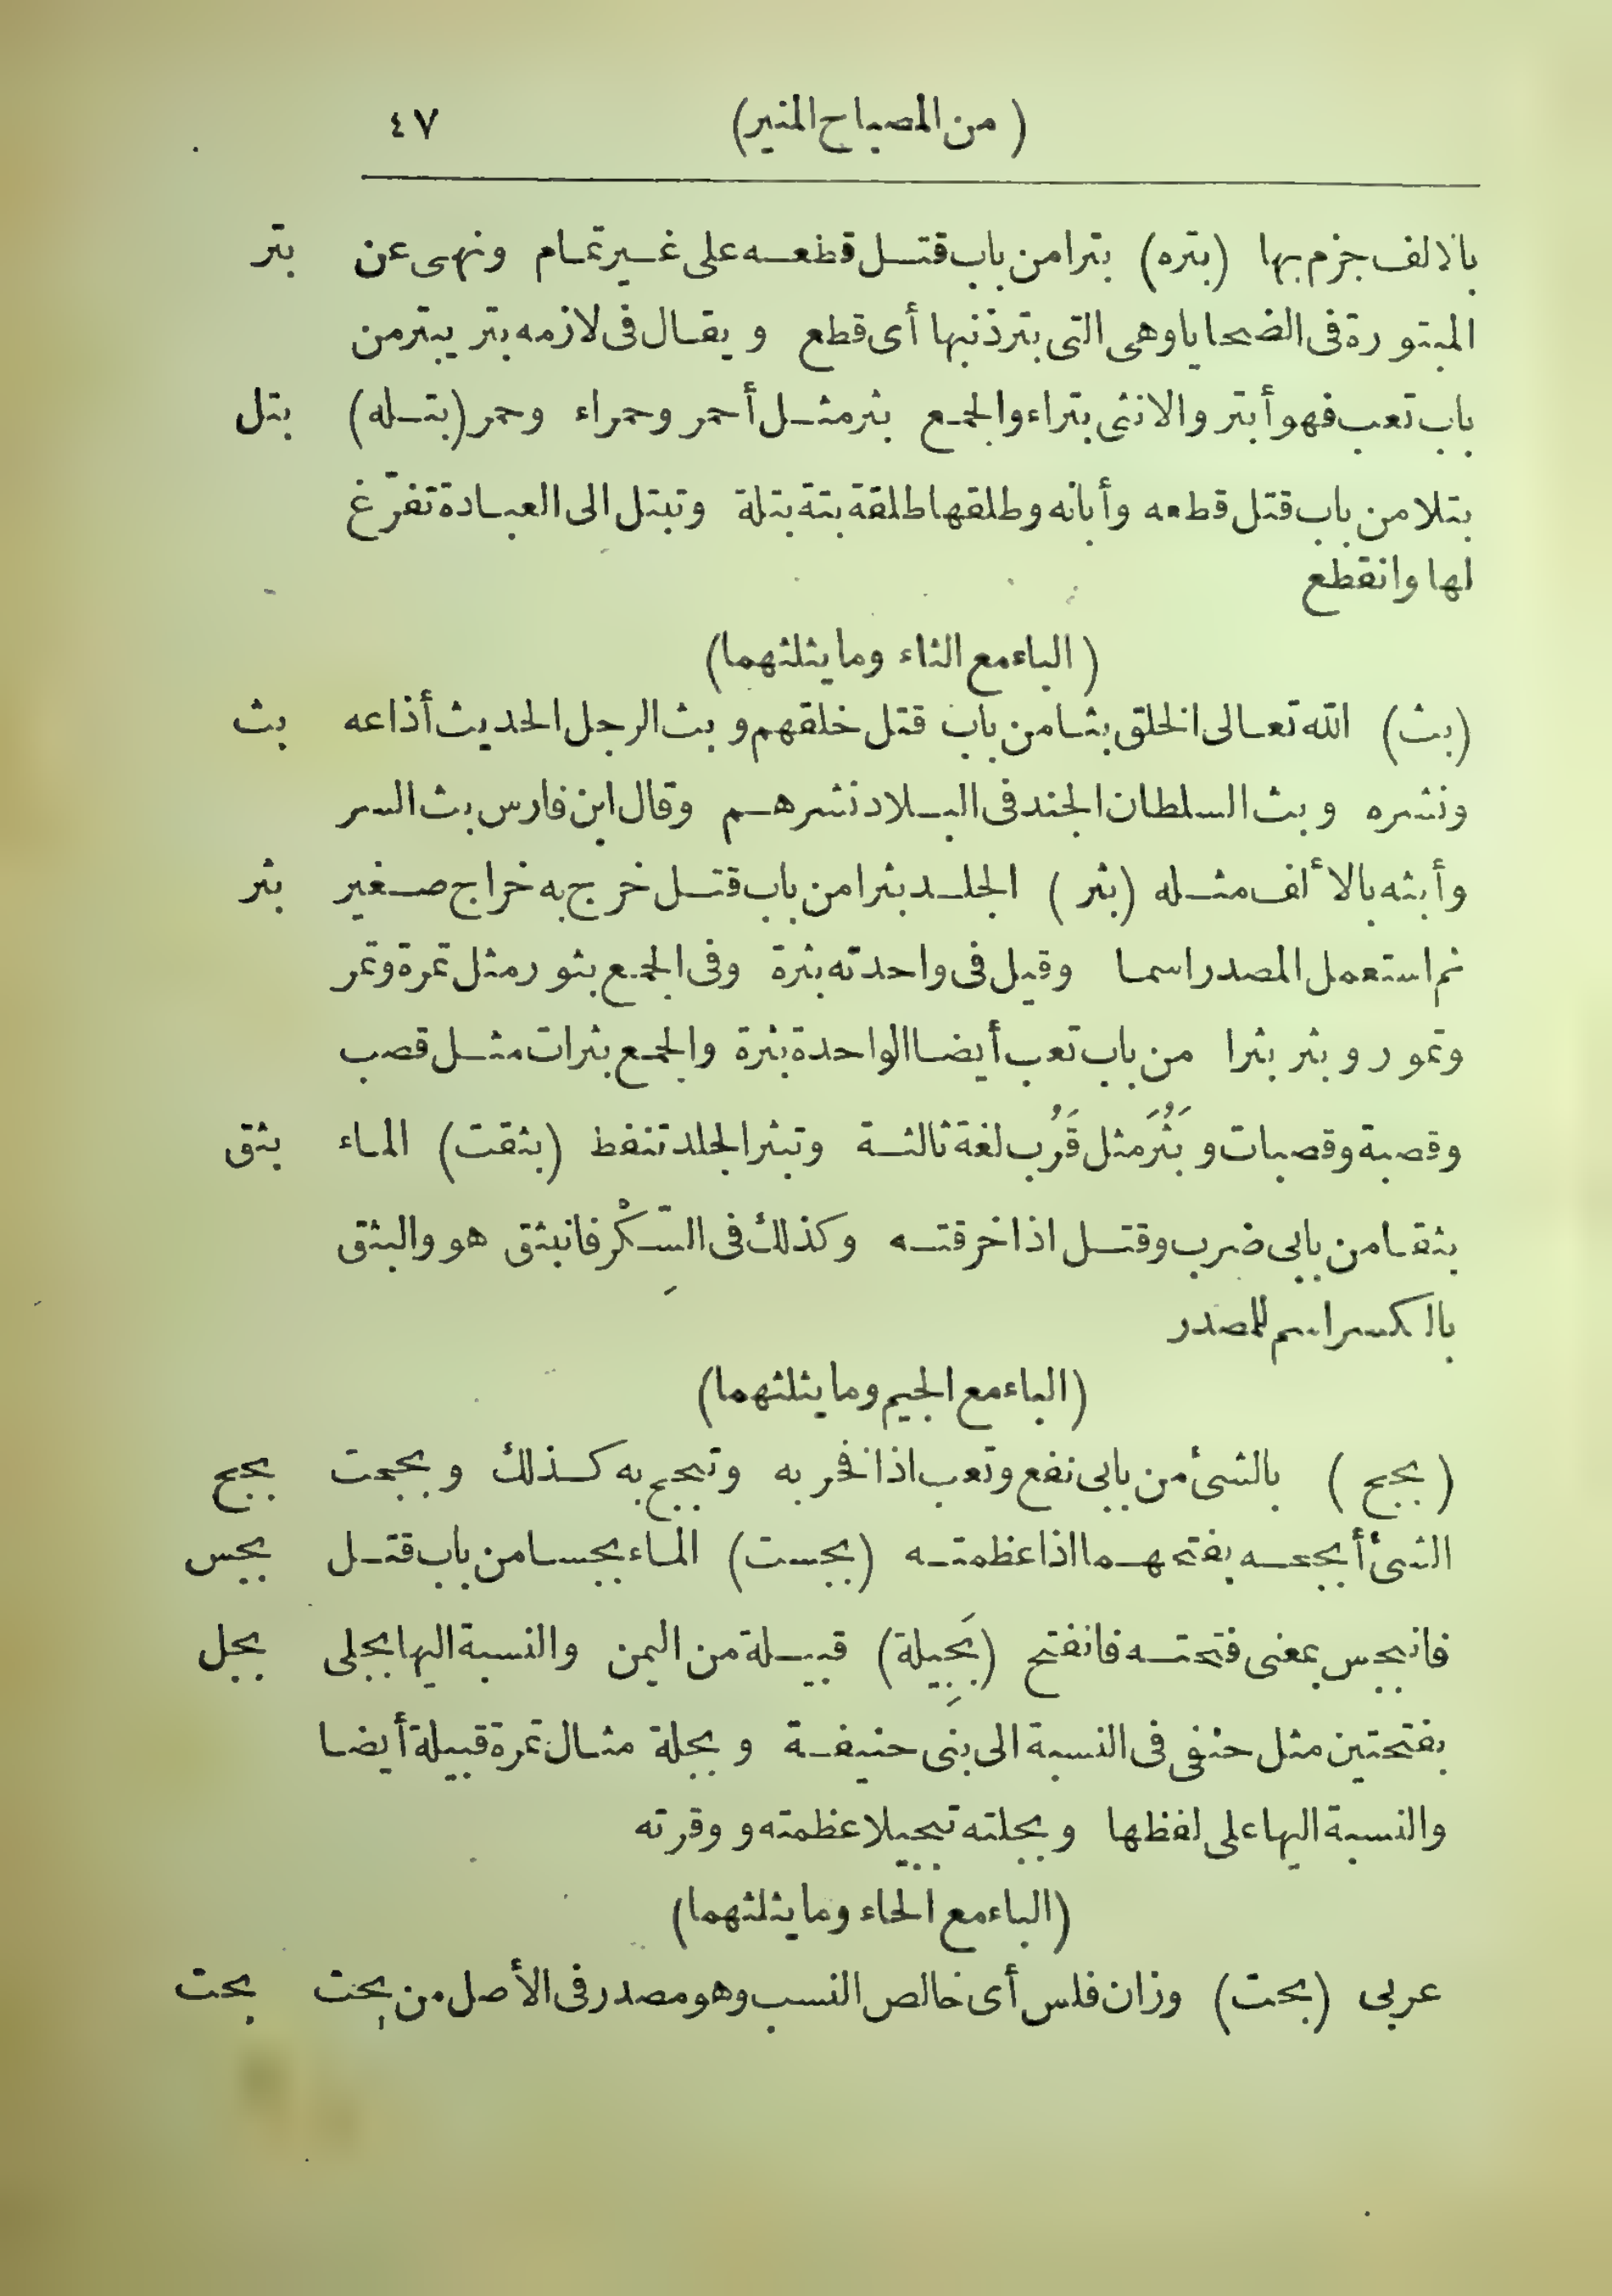 (من المصباح المنير) ٤٧
بالالف جزم بها (بتره) بترا من باب قتل قطعه على غير تمام ونهى عن بتر
المبتورة فى الضحايا وهى التى بتر ذنبها أى قطع ويقال فى لازمه بتر يبتر من
باب تعب فهو أبتر والانثى بتراء والجمع بتر مثل أحمر وحمراء وحمر (بتله) بتل
بتلا من باب قتل قطعه وأبانه وطلقها طلقة بتة بتلة وتبتل الى العبادة تفرّغ
لها وانقطع
(الباء مع الثاء وما يثلثهما)
(بث) الله تعالى الخلق بثا من باب قتل خلقهم وبث الرجل الحديث أذاعه بث
ونشره وبث السلطان الجند فى البلاد نشرهم وقال ابن فارس بث السر
وأبثه بالألف مثله (بثر) الجلد بثرا من باب قتل خرج به خراج صغير بثر
ثم استعمل المصدر اسما وقيل فى واحدته بثرة وفى الجمع بثور مثل تمرة وتمر
وتمور وبثر بثرا من باب تعب أيضا الواحدة بثرة والجمع بثرات مثل قصب
وقصبة وقصبات وبَثُرَ مثل قَرُب لغة ثالثة وتبثر الجلد تنفط (بثقت) الماء بثق
بثقا من بابى ضرب وقتل اذا خرقته وكذلك فى السِّكْر فانبثق هو والبثق
بالكسر اسم للمصدر
(الباء مع الجيم وما يثلثهما)
(بجح) بالشئ من بابى نفع وتعب اذا فخر به وتبجح به كذلك وبجحت بجح
الشئ أبجحه بفتحهما اذا عظمته (بجست) الماء بجسا من باب قتل بجس
فانبجس بمعنى فتحته فانفتح (بَجِيلة) قبيلة من اليمن والنسبة اليها بجلى بجل
بفتحتين مثل حنفى فى النسبة الى بنى حنيفة وبجلة مثال تمرة قبيلة أيضا
والنسبة اليها على لفظها وبجلته تبجيلا عظمته ووقرته
(الباء مع الحاء وما يثلثهما)
عربى (بحت) وزان فلس أى خالص النسب وهو مصدر فى الأصل من بحت بحت